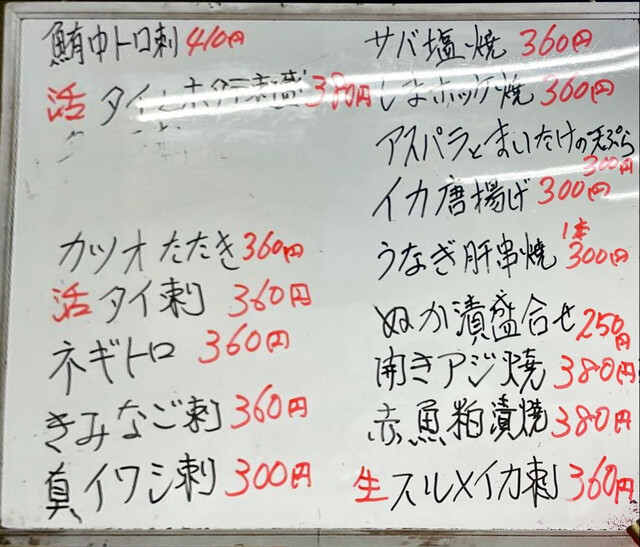 鮪中トロ刺 410円
活 タイとホタテ刺盛 380円
カツオたたき 360円
活 タイ刺 360円
ネギトロ 360円
きみなご刺 360円
真イワシ刺 300円
サバ塩焼 360円
しまホッケ焼 360円
アスパラとまいたけの天ぷら
300円
イカ唐揚げ 300円
うなぎ肝串焼 1本 300円
ぬか漬盛合せ 250円
開きアジ焼 380円
赤魚粕漬焼 380円
生 スルメイカ刺 360円